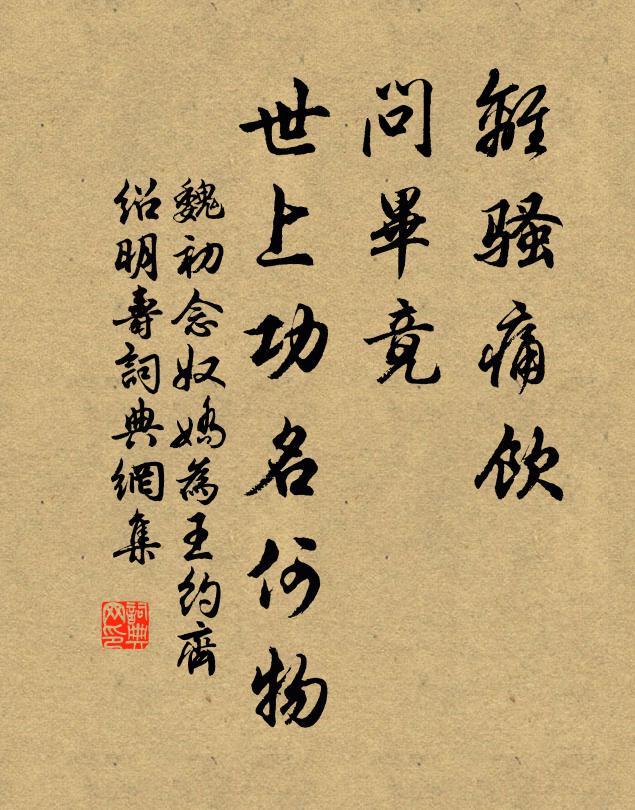 離騷痛飲
問畢竟
世上功名何物
魏初念奴嬌為王約齋
紹明壽詞典網集
詞典網印